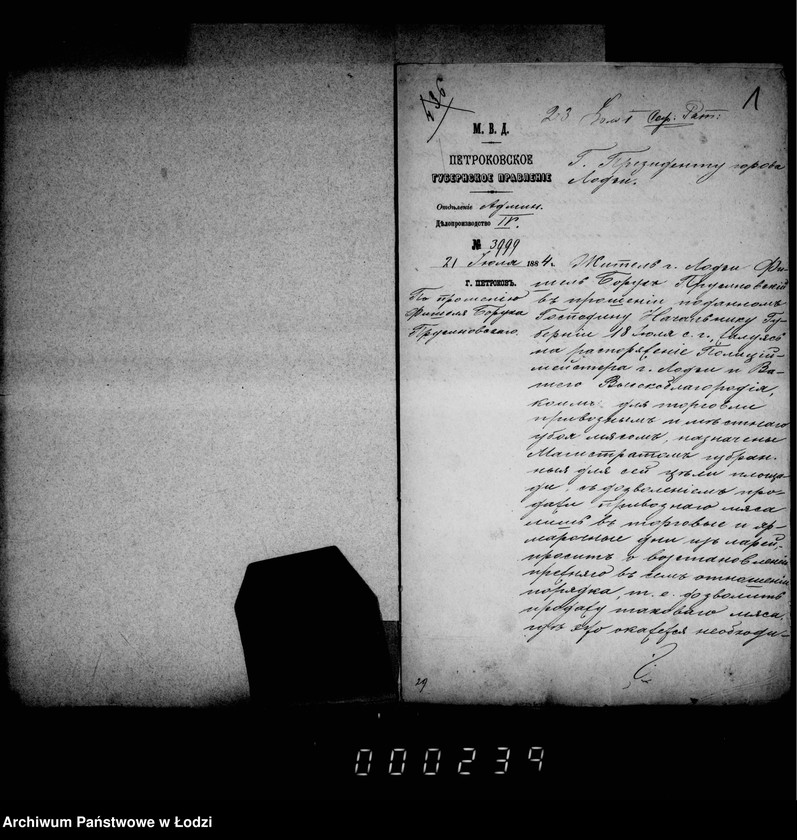 236
1
М. В. Д.
ПЕТРОКОВСКОЕ
ГУБЕРНСКОЕ ПРАВЛЕНІЕ
Отдѣленіе Админ.
Дѣлопроизводство IV.
№ 3999
21 Іюля 1884 г.
Г. ПЕТРОКОВЪ.
По прошенію
жителя Боруха
Прусиновскаго.
Г. Президенту города
Лодзи.
Житель г. Лодзи Фи-
шель Борухъ Прусиновскій
въ прошеніи поданномъ
Господину Начальнику Гу-
берніи 18 Іюля с. г., жалуясь
на распоряженіе Полицій-
мейстера г. Лодзи и Ва-
шего Высокоблагородія,
коимъ для торговли
привознымъ и мѣстнаго
убоя мясомъ, назначены
Магистратомъ
для сей цѣли площа-
ди, съ дозволеніемъ про-
дажи привознаго мяса
лишь въ торговые и яр-
марочные дни изъ ларей,
проситъ о возстановленіи
прежняго въ семъ отношеніи
порядка, т. е. дозволить
продажу таковаго мяса
гдѣ это окажется необходи-
29
000239
Archiwum Państwowe w Łodzi